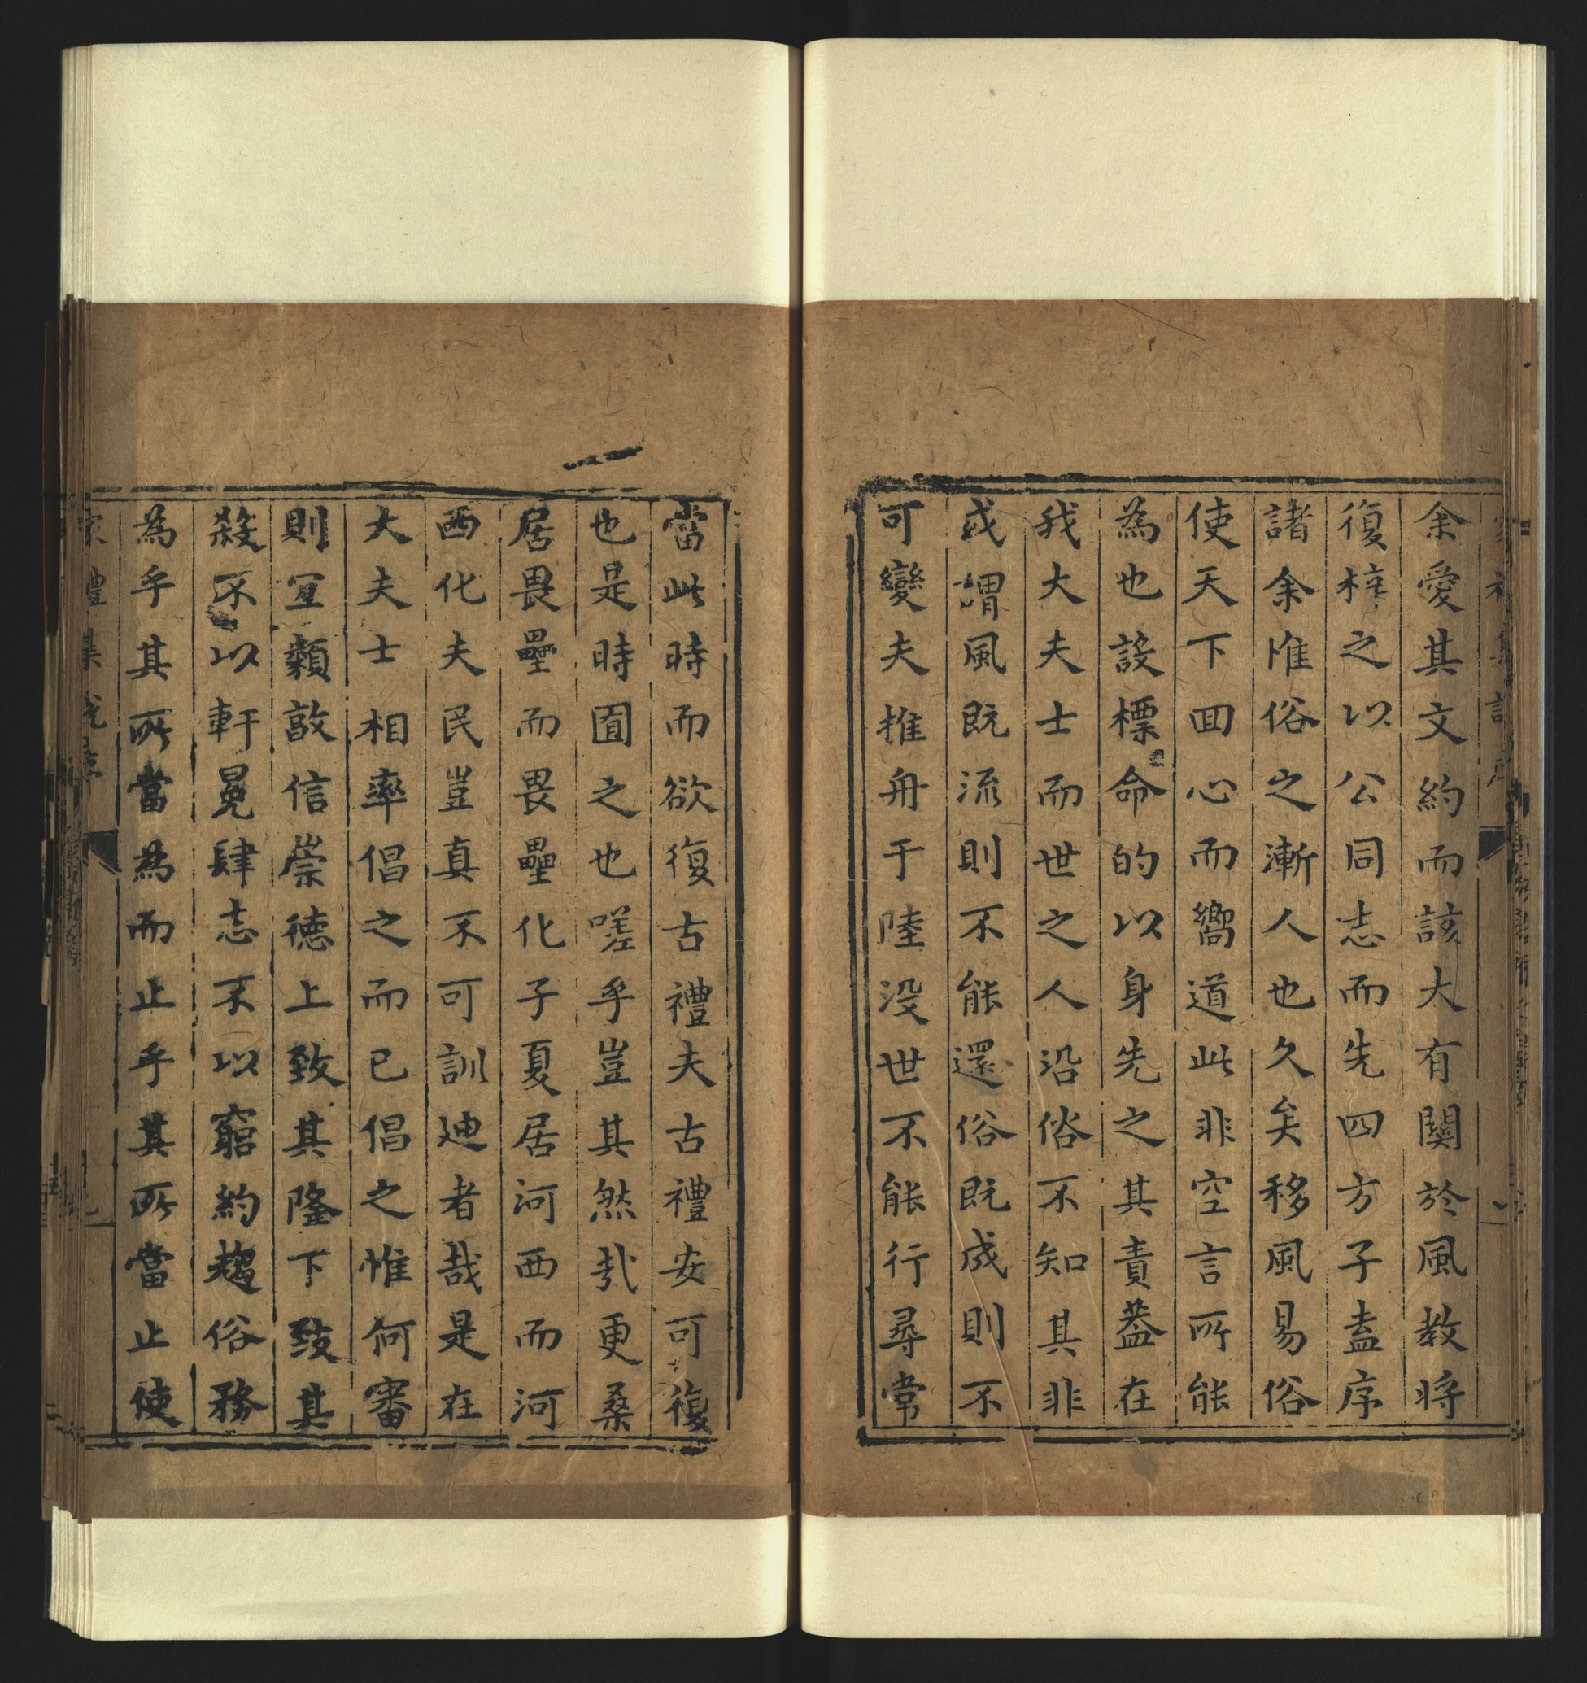 余愛其文約而該大有關於風教將
復梓之以公同志而先四方子盍序
諸余惟俗之漸人也久矣移風易俗
使天下回心而嚮道此非空言所能
為也設標命的以身先之其責葢在
我大夫士而世之人沿俗不知其非
或謂風既流則不能還俗既成則不
可變夫推舟于陸没世不能行尋常
當此時而欲復古禮夫古禮安可復
也是時囿之也嗟乎豈其然哉更桑
居畏壘而畏壘化子夏居河西而河
西化夫民豈真不可訓迪者哉是在
大夫士相率倡之而已倡之惟何審
則宜類敦信崇德上致其隆下致其
殺不以軒冕肆志不以窮約趨俗務
為乎其所當為而止乎其所當止使